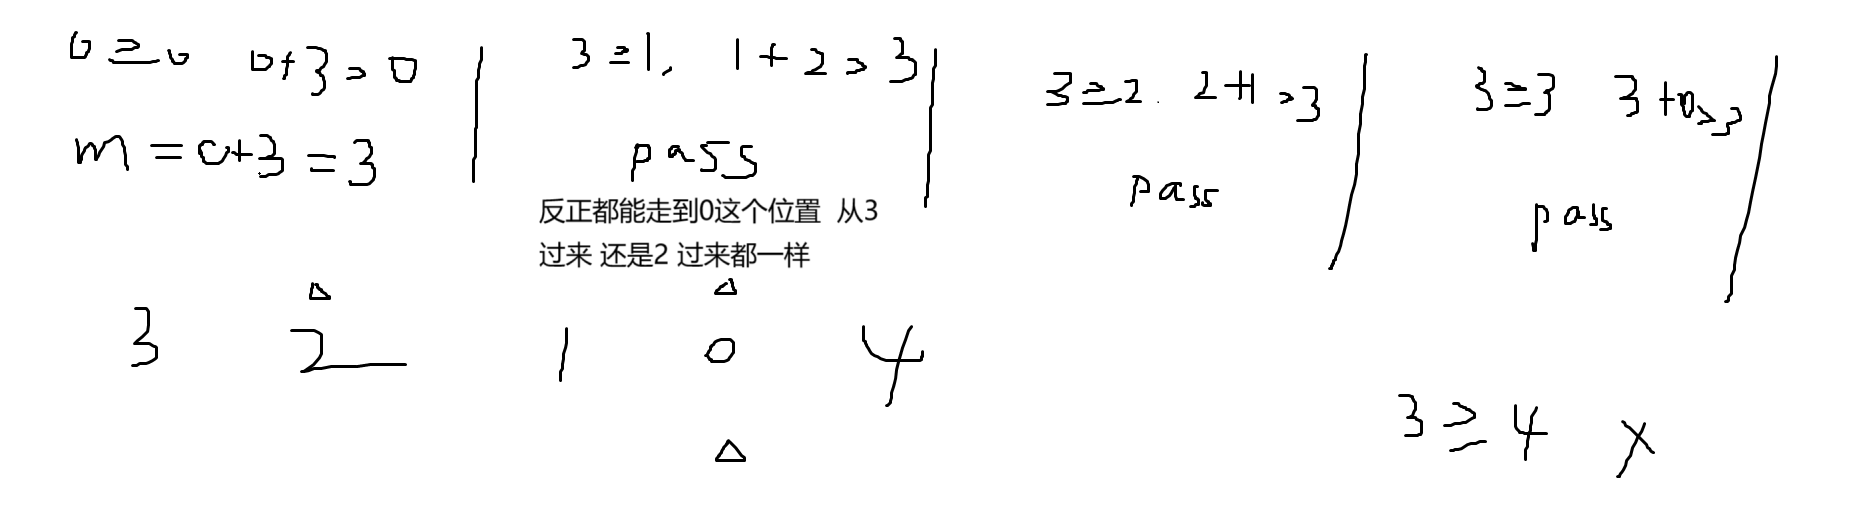 0≥0 0+3>0
m=0+3=3
3≥1, 1+2>3
pass
反正都能走到0这个位置 从3
过来 还是2 过来都一样
3≥2. 2+1>3
pass
3≥3 3+0>3
pass
3 2 1 0 4
3≥4 X